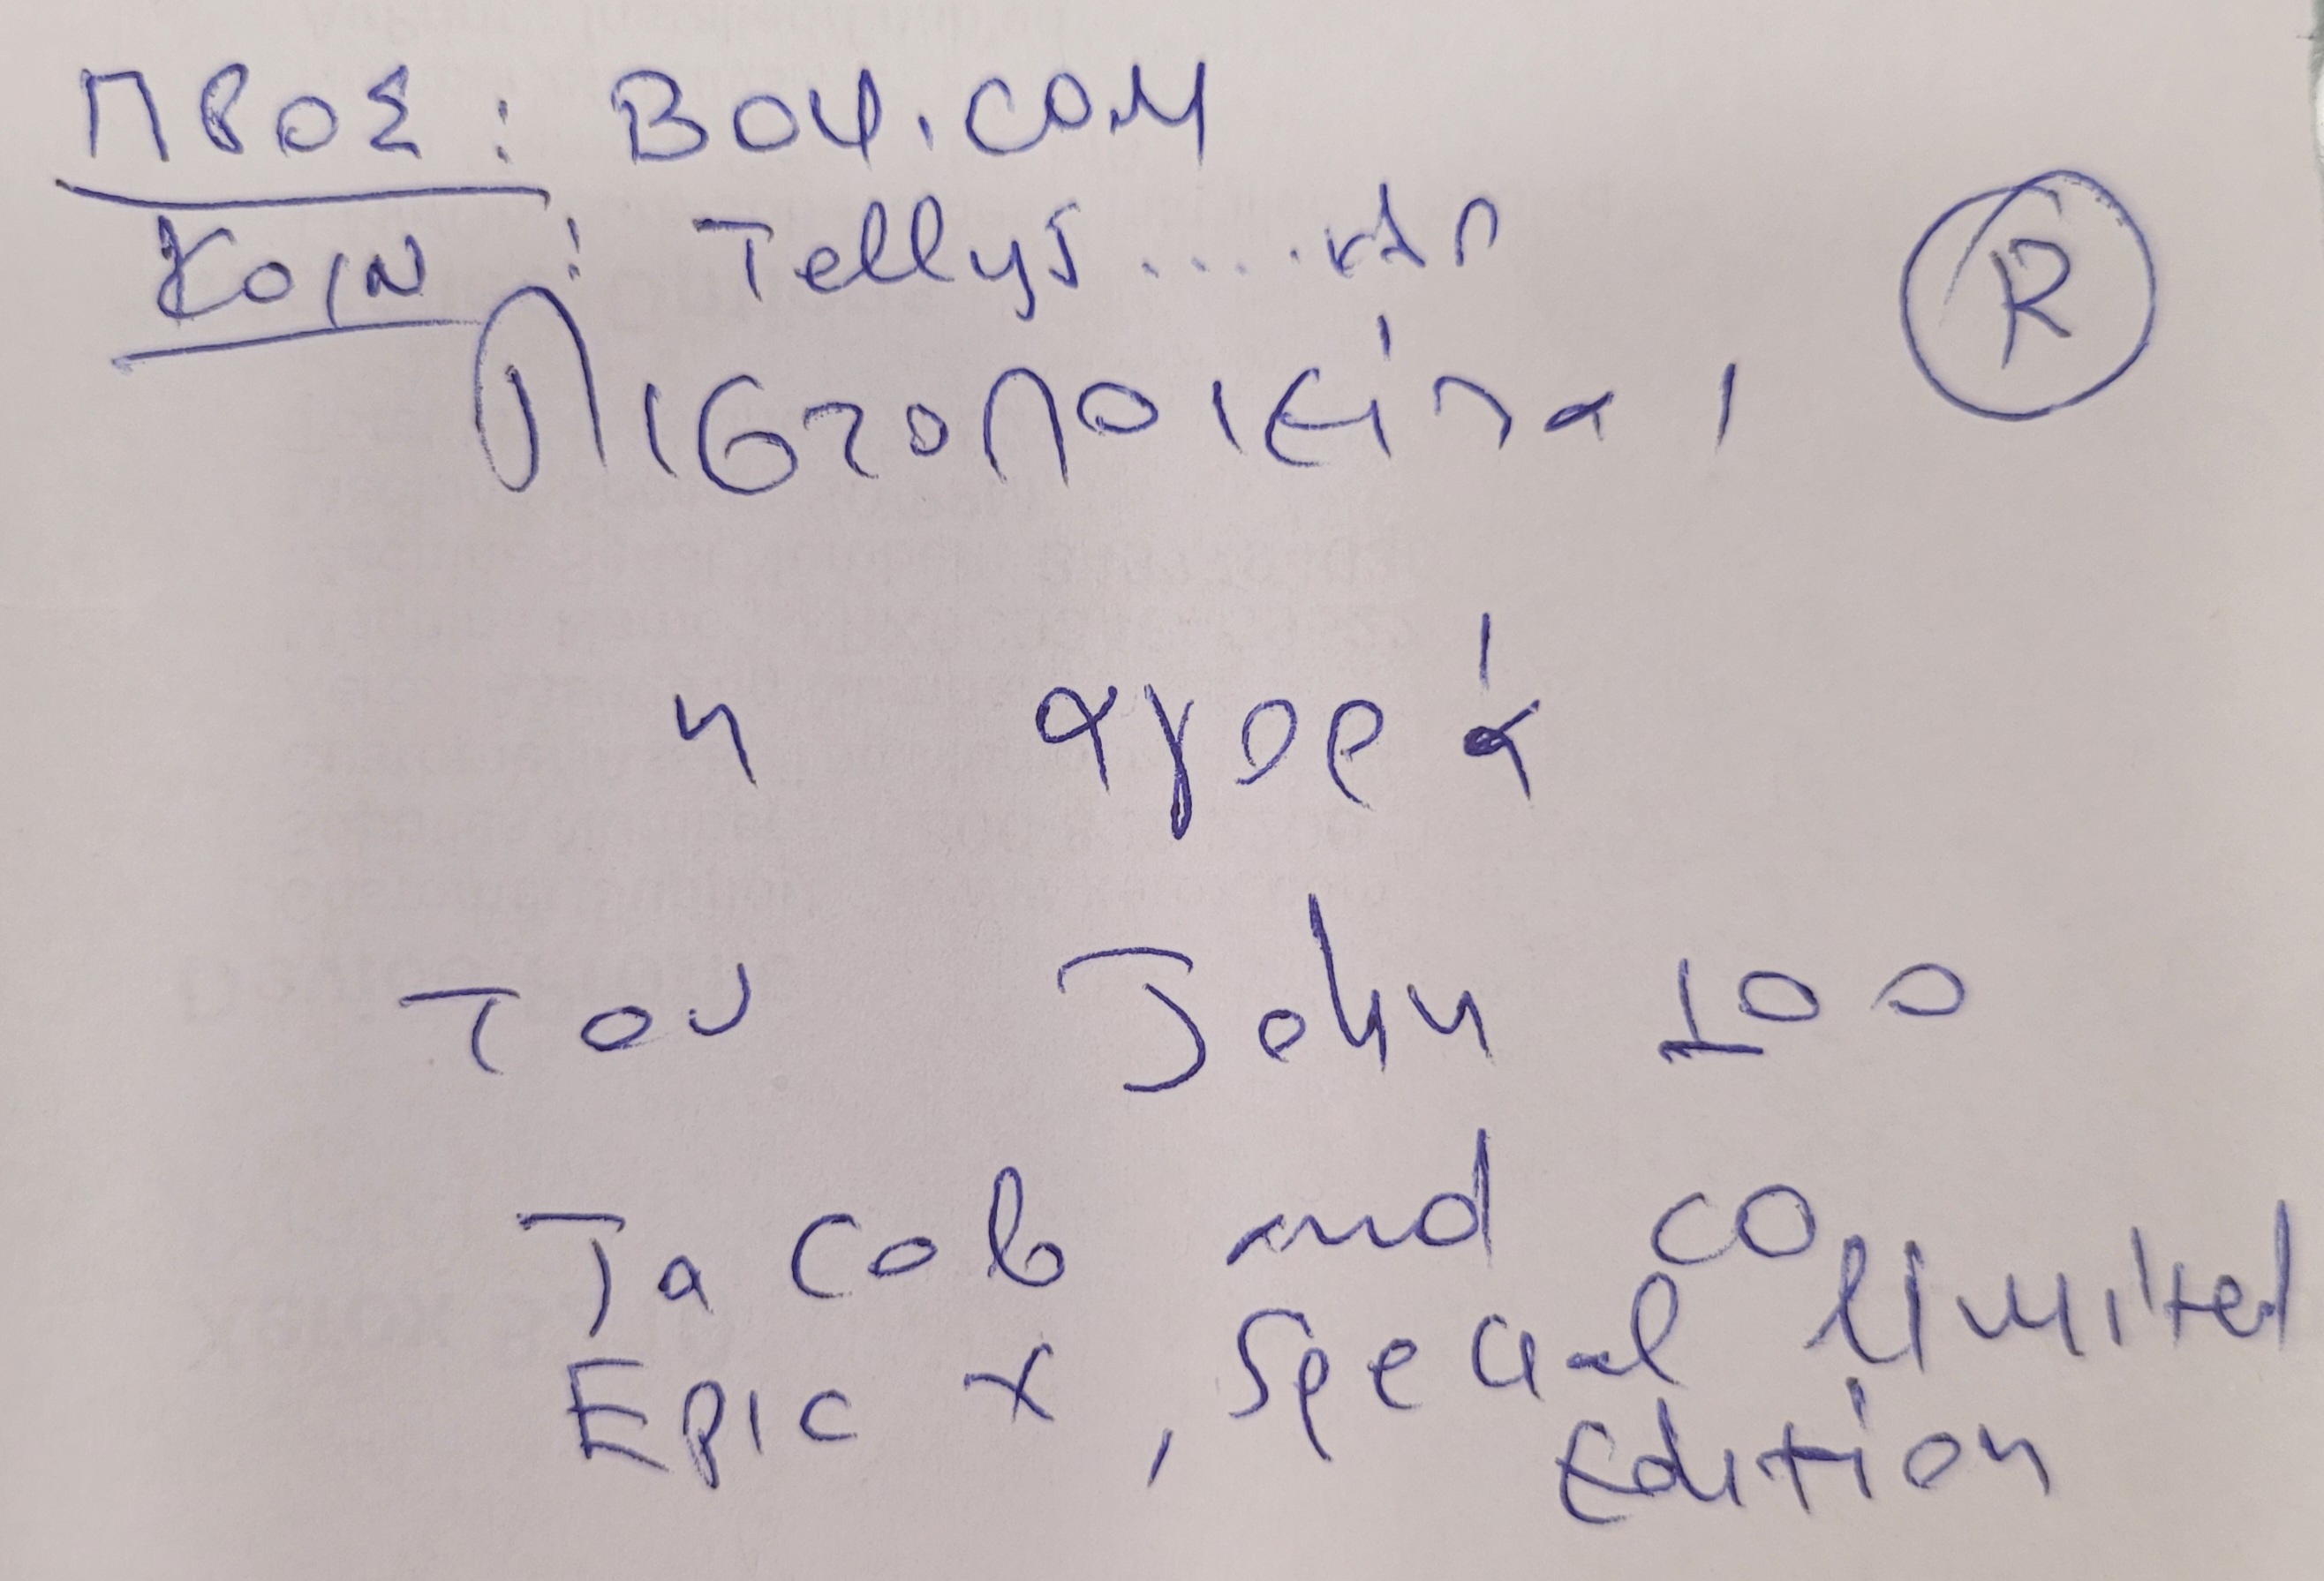 ΠΡΟΣ: BOY.COM
ΚΟΙΝ: Tellys.... κλπ
R
Πιστοποιείται
η αγορά
Του John 100
Jacob and CO
Epic X, Special limited
Edition